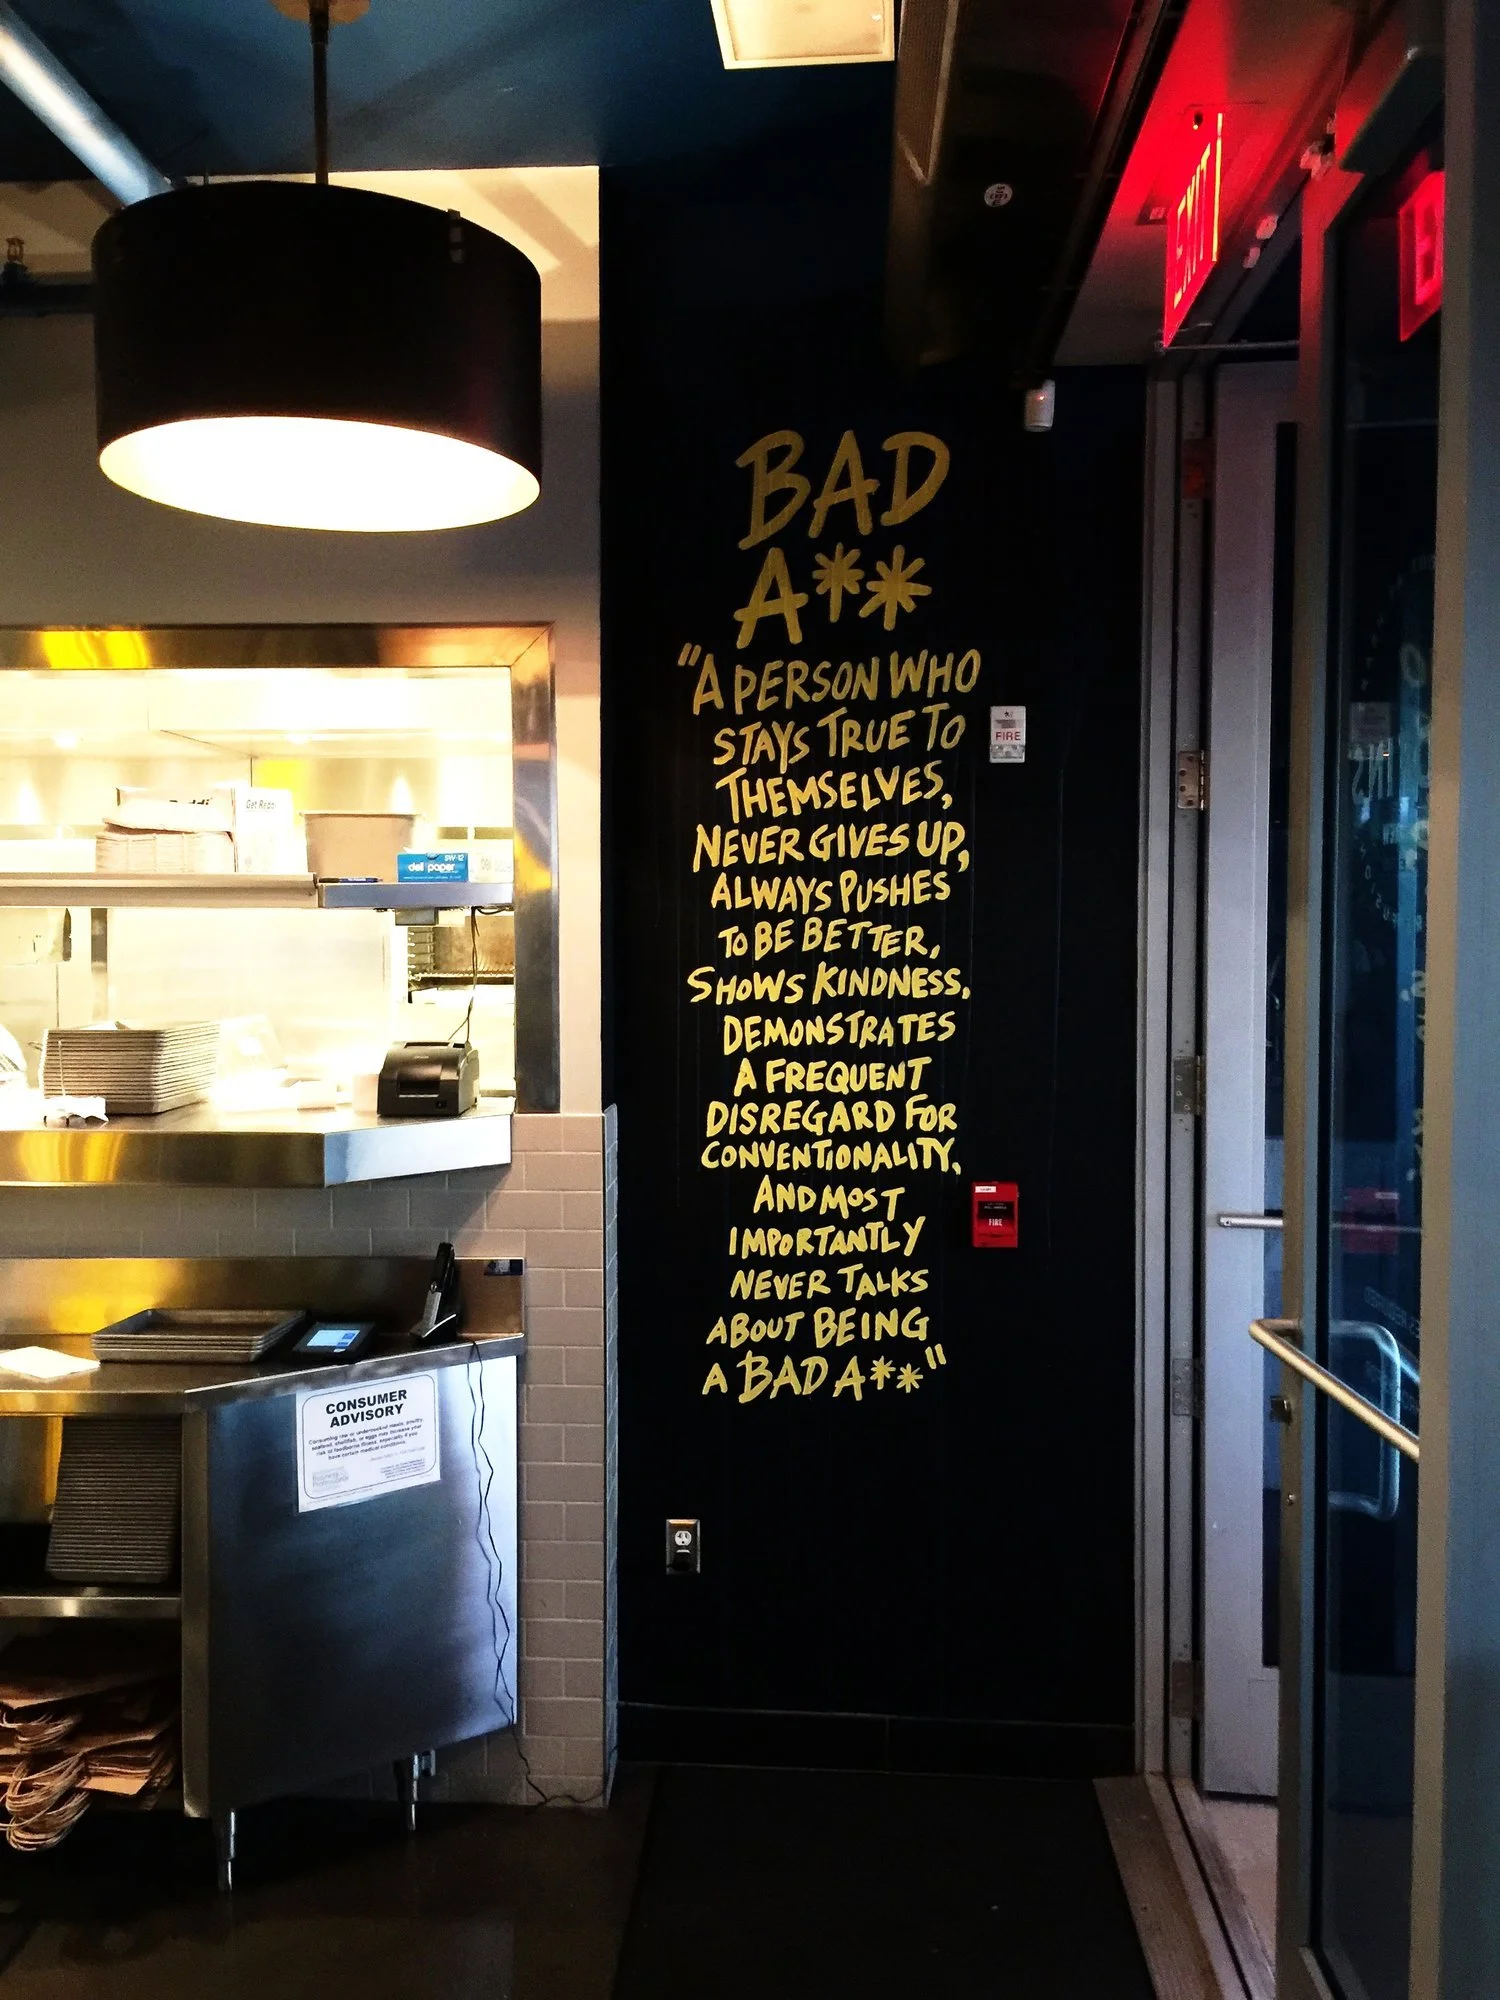 EXIT
BAD
A**
"A PERSON WHO
STAYS TRUE TO
THEMSELVES,
NEVER GIVES UP,
ALWAYS PUSHES
TO BE BETTER,
SHOWS KINDNESS,
DEMONSTRATES
A FREQUENT
DISREGARD FOR
CONVENTIONALITY,
AND MOST
IMPORTANTLY
NEVER TALKS
ABOUT BEING
A BAD A**"
FIRE
FIRE
Get Reddi
SW-12
deli paper
EPSON
CONSUMER
ADVISORY
Consuming raw or undercooked meats, poultry,
seafood, shellfish, or eggs may increase your
risk of foodborne illness, especially if you
have certain medical conditions.